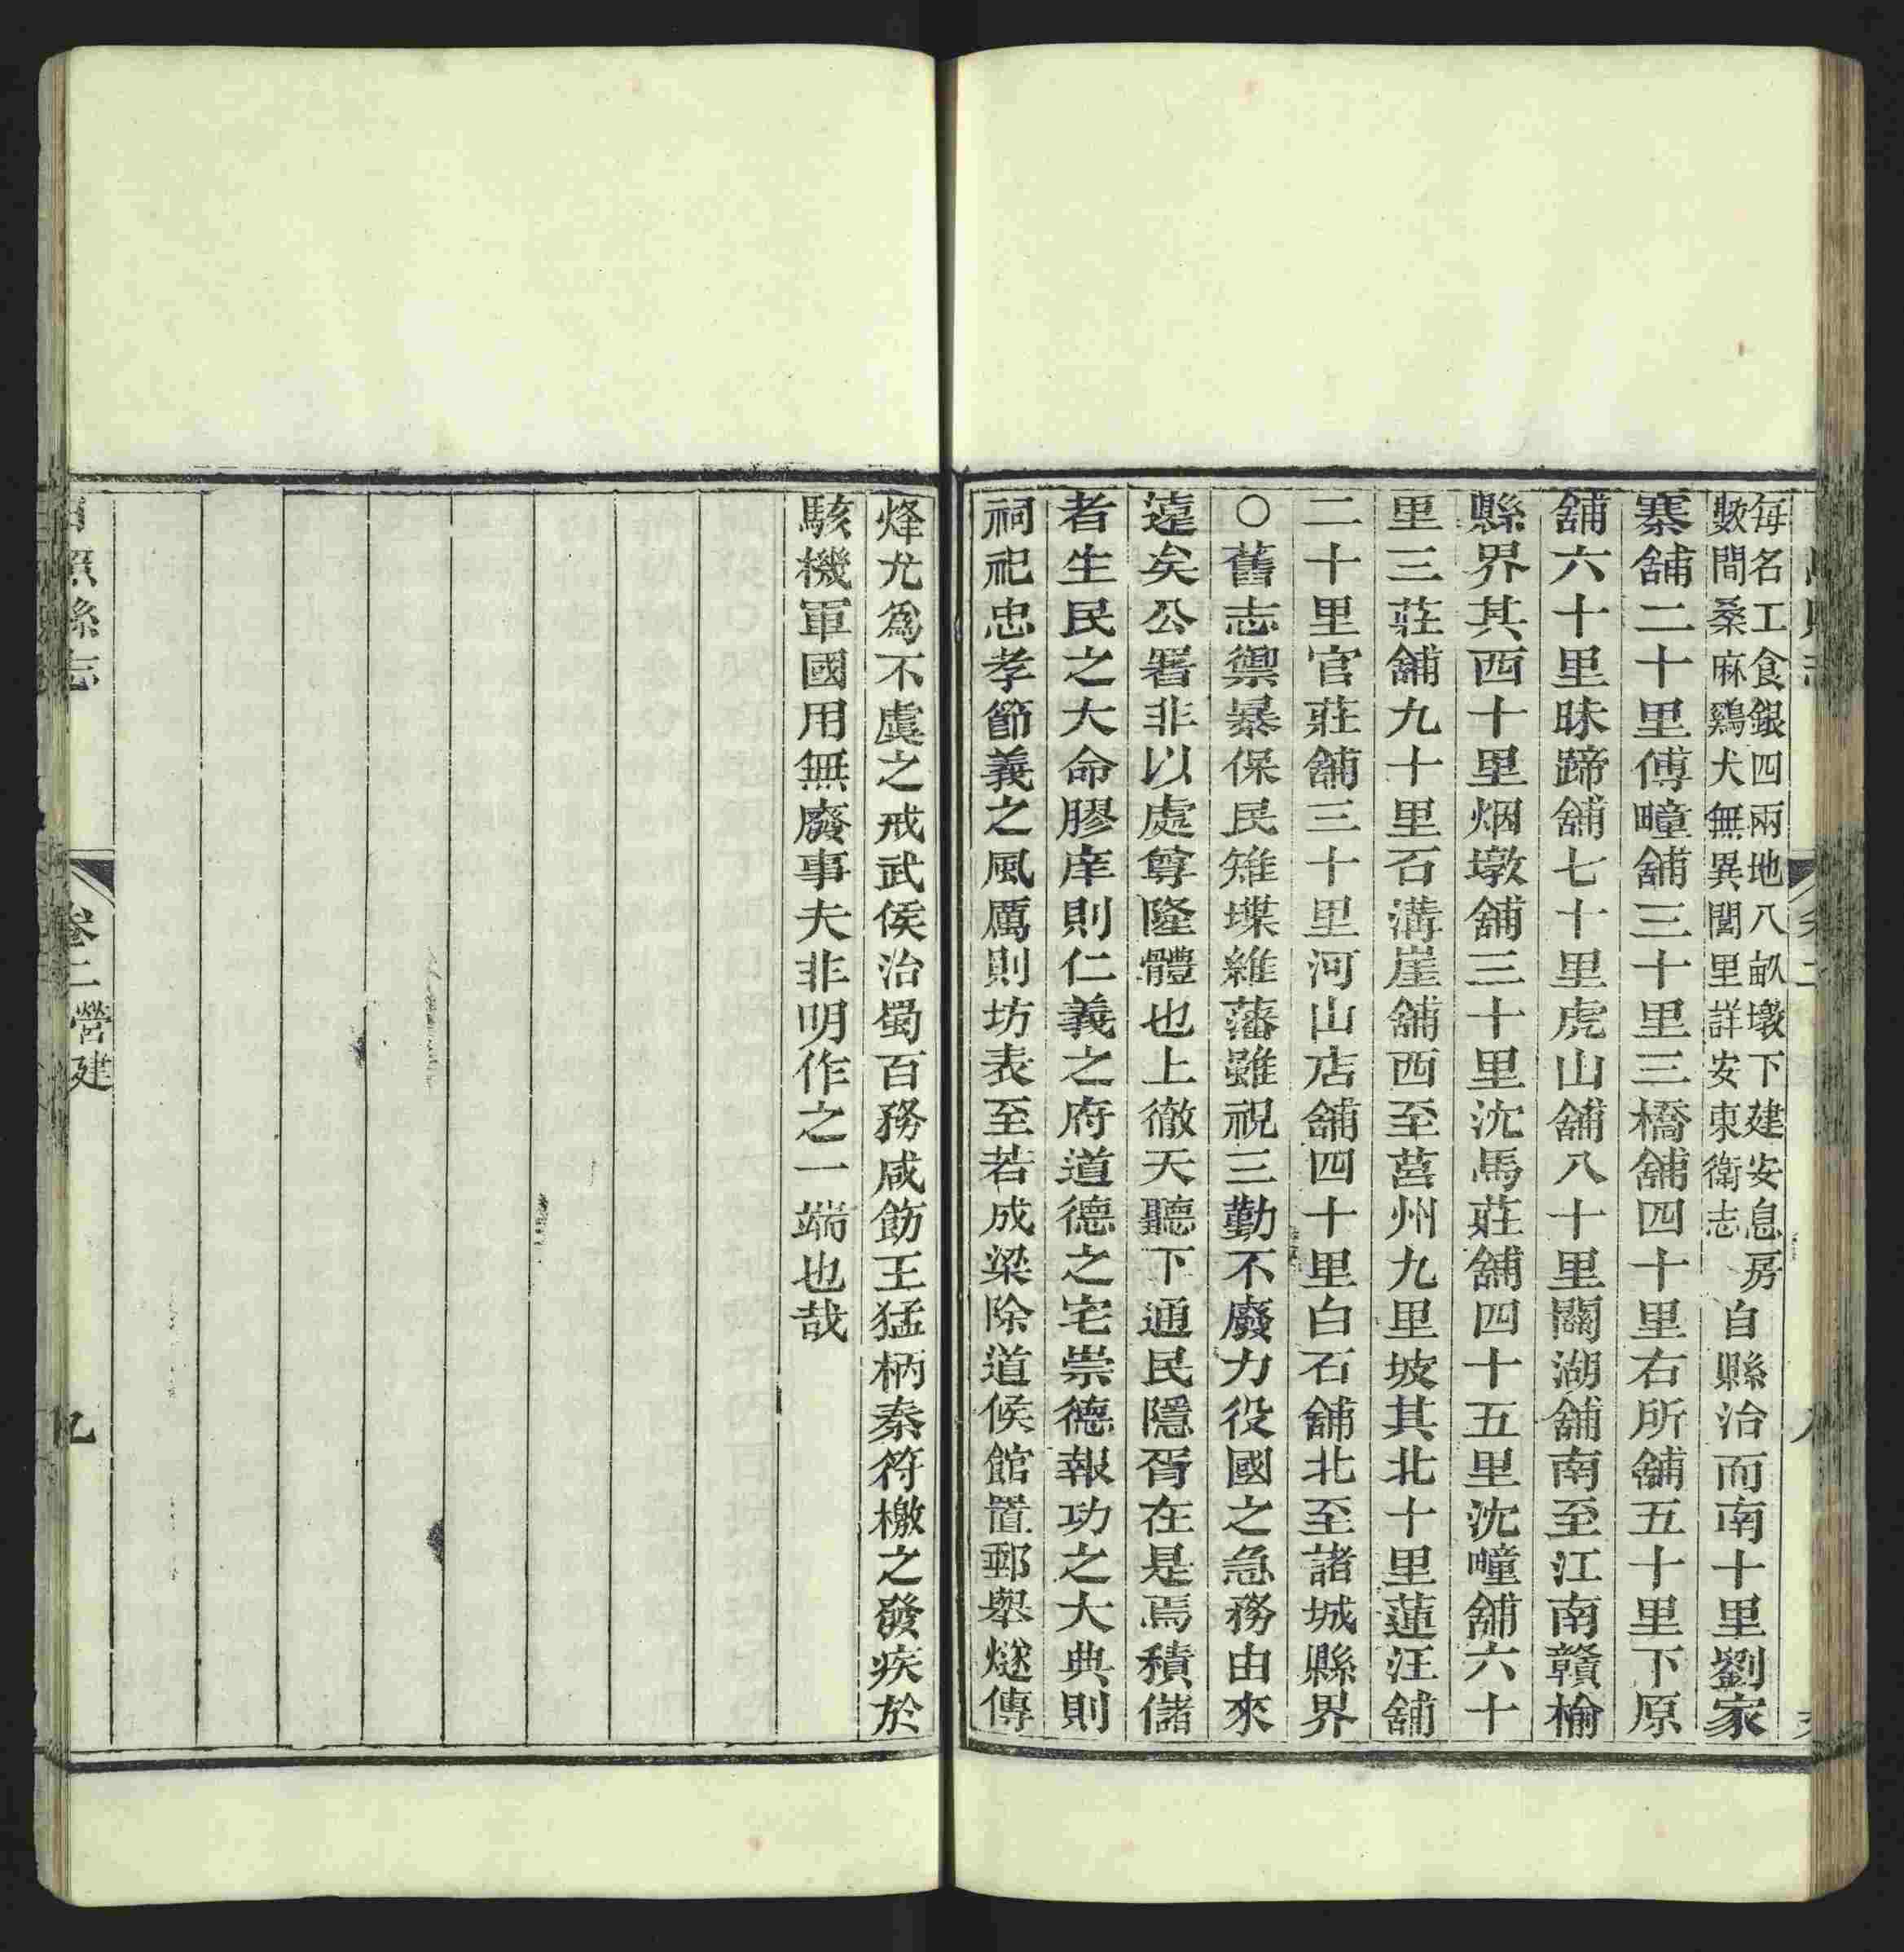 每名工食銀四兩地八畝墩下建安息房
數間桑麻鷄犬無異閭里詳安東衛志
自縣治而南十里劉家
寨舖二十里傅疃舖三十里三橋舖四十里右所舖五十里下原
舖六十里昧蹄舖七十里虎山舖八十里關湖舖南至江南贛榆
縣界其西十里烟墩舖三十里沈馬莊舖四十五里沈疃舖六十
里三莊舖九十里石溝崖舖西至莒州九里坡其北十里蓮汪舖
二十里官莊舖三十里河山店舖四十里白石舖北至諸城縣界
○舊志禦暴保民雉堞維藩雖視三勤不廢力役國之急務由來
遠矣公署非以處尊隆體也上徹天聽下通民隱胥在是焉積儲
者生民之大命膠庠則仁義之府道德之宅崇德報功之大典則
祠祀忠孝節義之風厲則坊表至若成梁除道候館置郵舉燧傳
烽尤為不虞之戒武侯治蜀百務咸飭王猛柄秦符檄之發疾於
駭機軍國用無廢事夫非明作之一端也哉
日照縣志
卷二 營建
九